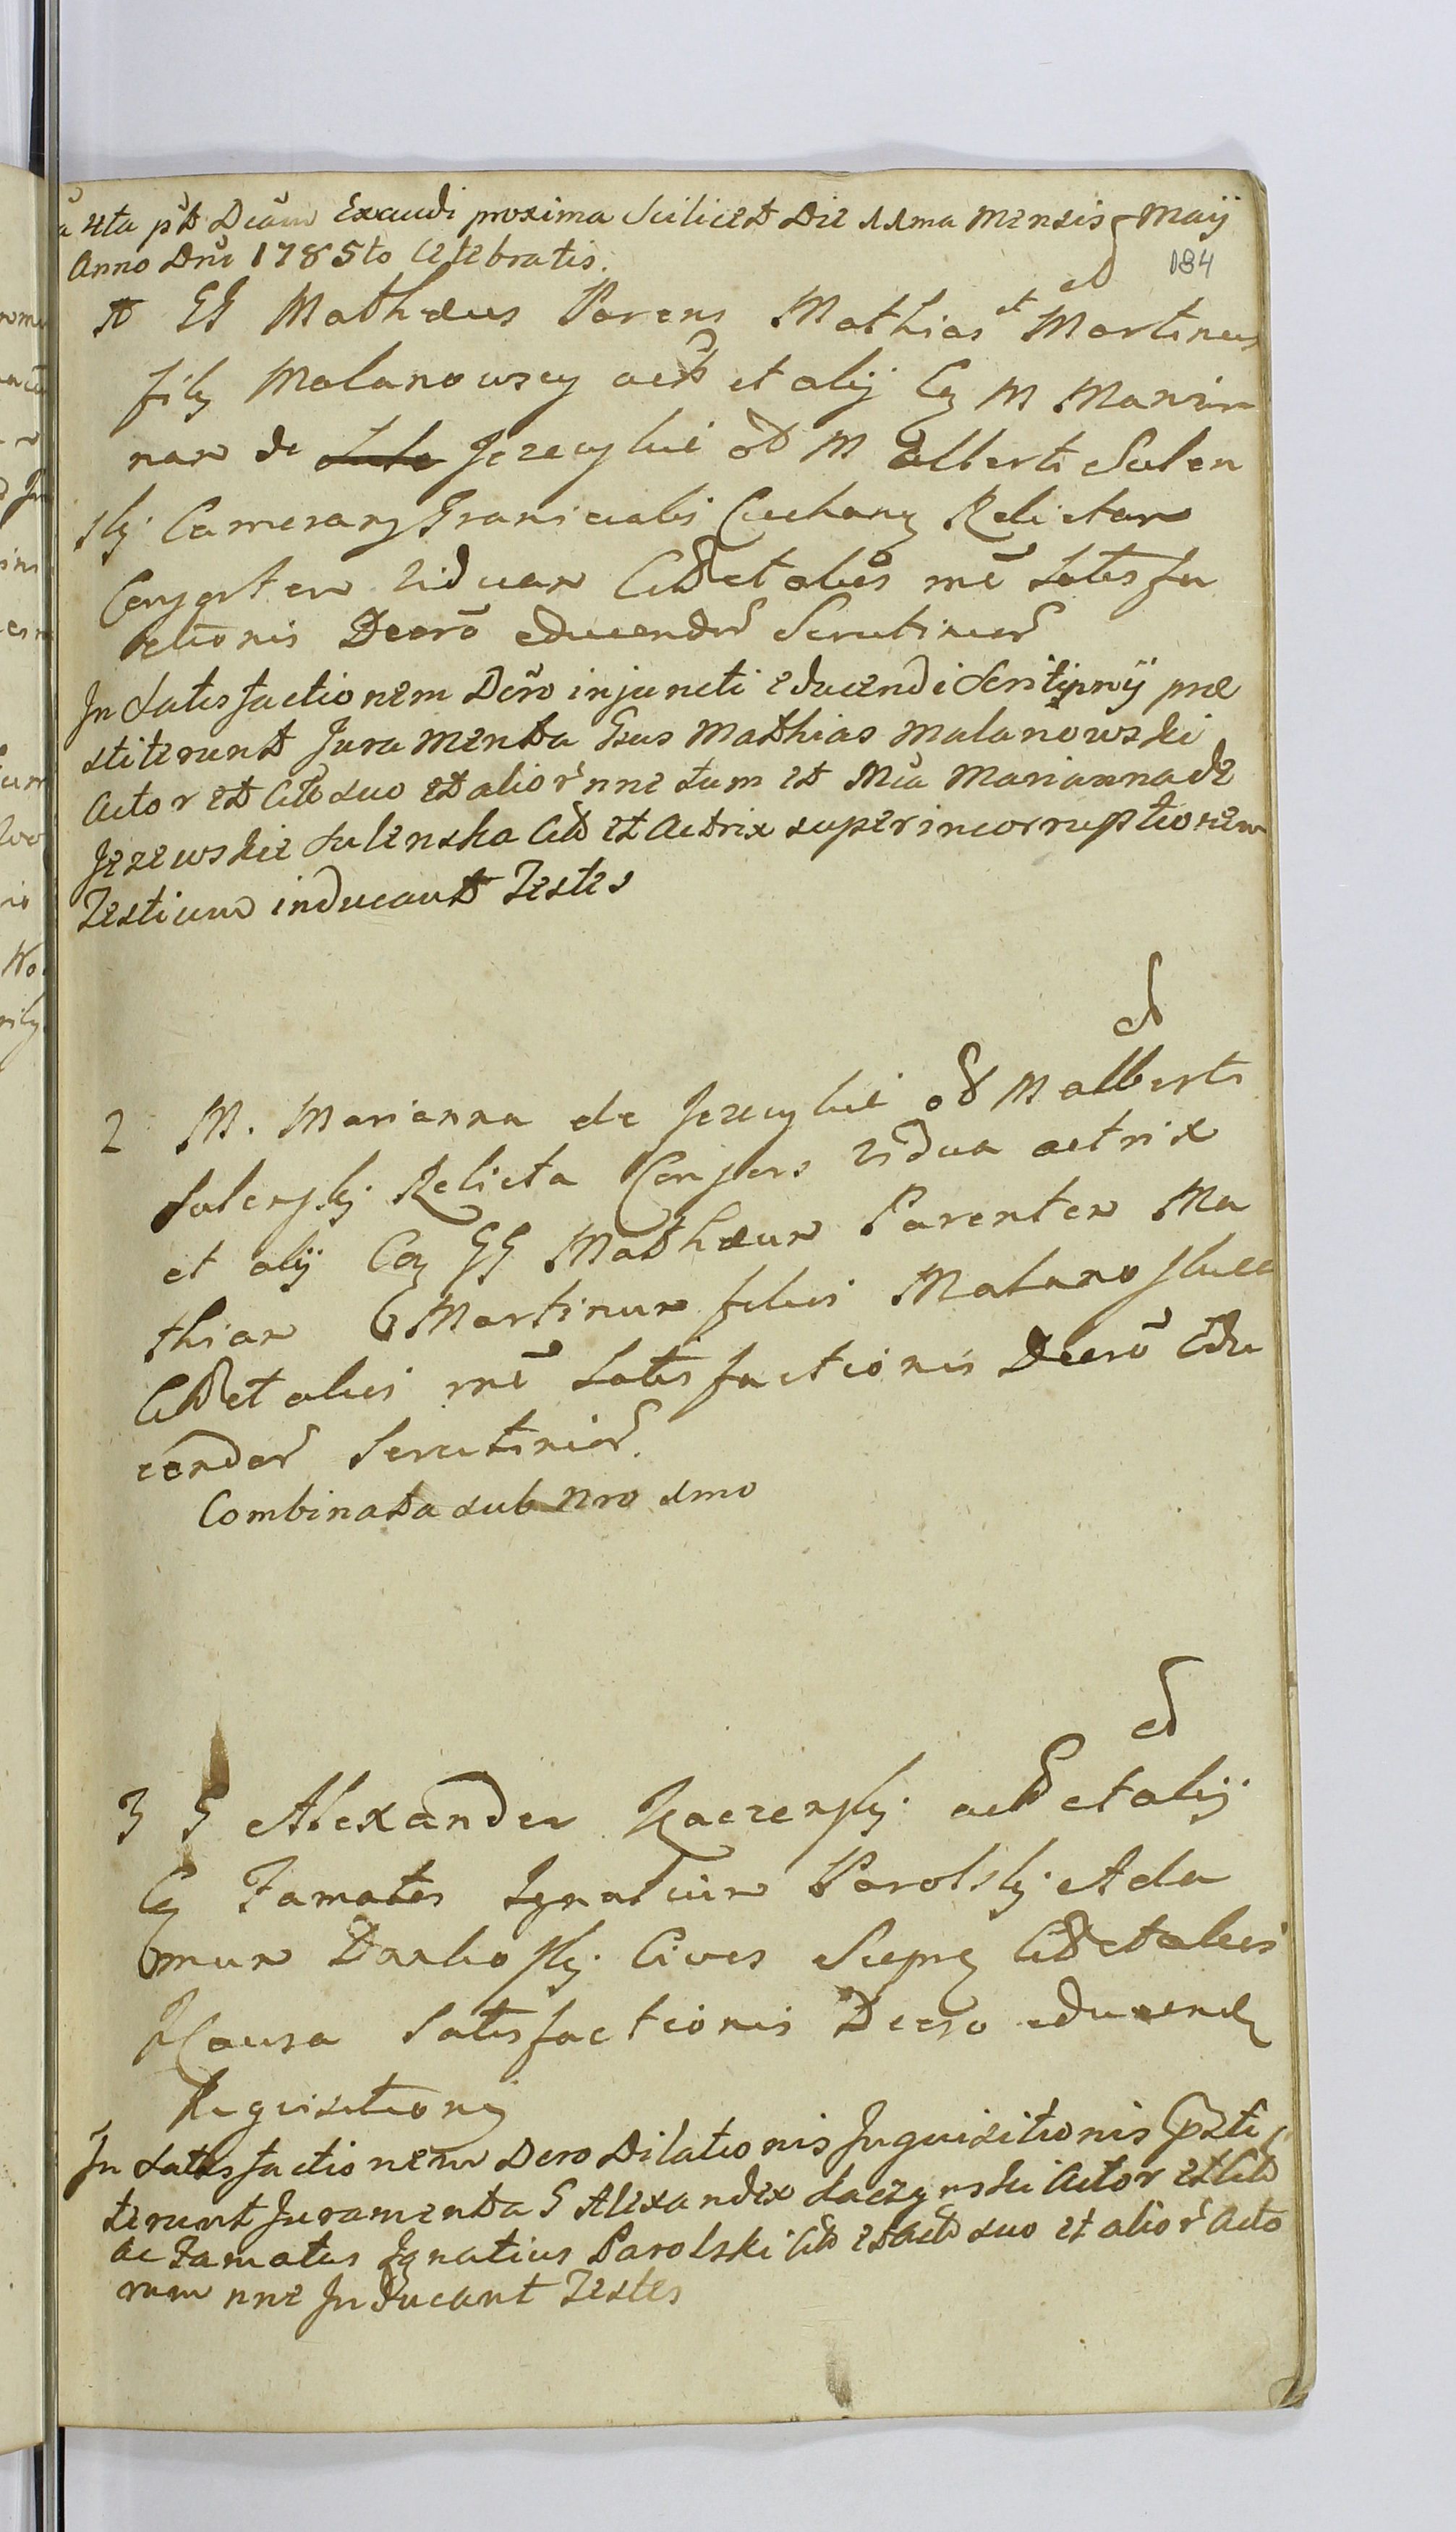 4ta pt Dcam Exaudi proxima Scilicet Die 11ma Mensis Maij
Anno Dni 1785to Celebratis.
184
GG Mathæus Parens Mathias et Martinus
filij Malanowscy act et alij Cg M Marian
nam de Jezewskie M Alberti Sulen
skj Camerarij Granicialis Ciechany Relictam
Consortem Viduam Citt et alios rne Satisfa
ctionis Decrō educendor Scrutinior
In Satisfactionem Dcro injuncti educendi Scrutiny præ
stiterunt Juramenta Gsus Mathias Malanowski
Actor et Citt suo et alior nne tum et Mca Marianna de
Jezewskie Sulenska Citt et Actrix super incorruptionem
Testium inducant Testes
2 M. Marianna de Jezewskie M Alberti
Sulenskj Relicta Consors Vidua actrix
et alij Cg GG Mathæum Parentem Ma
thiam Martinum filios Malanoskie
Citt et alios rne Satisfactionis Decrō Edu
cendor Scrutinior
Combinata sub Nro 1mo
3 G Alexander Kaczenskj act et alij
Cg Famatos Ignatium Parolskj Ada
mum Darkoskj Cives Sieprg Citt et alios
Causa Satisfactionis Decro educend
Inquisitionis
In Satisfactionem Dcro Dilationis Inquisitionis psti
terunt Juramenta G Alexander Kaczynski Actor et Citt
ac Famatus Ignatius Parolski Citt et Act suo et alior Acto
rum nne Inducant Testes